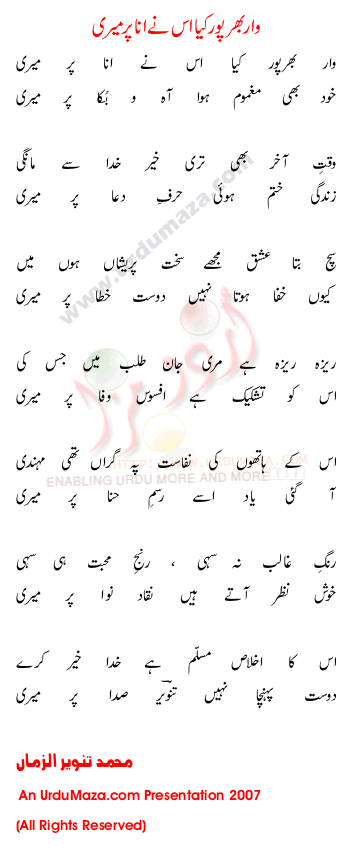 وار بھر پور کیا اس نے انا پر میری
وار بھر پور کیا اس نے انا پر میری
خود بھی مغموم ہوا آہ و بُکا پر میری
وقتِ آخر بھی تری خیر خدا سے مانگی
زندگی ختم ہوئی حرفِ دعا پر میری
سچ بتا عشق مجھے سخت پریشاں ہوں میں
کیوں خفا ہوتا نہیں دوست خطا پر میری
ریزہ ریزہ ہے مری جان طلب میں جس کی
اس کو تشکیک ہے افسوس وفا پر میری
اس کے ہاتھوں کی نفاست پہ گراں تھی مہندی
آ گئی یاد اسے رسمِ حنا پر میری
رنگِ غالب نہ سہی ، رنجِ محبت ہی سہی
خوش نظر آتے ہیں نقاد نوا پر میری
اس کا اخلاص مسلّم ہے خدا خیر کرے
دوست پہنچا نہیں تنویرؔ صدا پر میری
محمد تنویر الزماں
An UrduMaza.com Presentation 2007
(All Rights Reserved)
www.urdumaza.com
اُردو مزا
HTTP://WWW.URDUMAZA.COM
ENABLING URDU MORE AND MORE